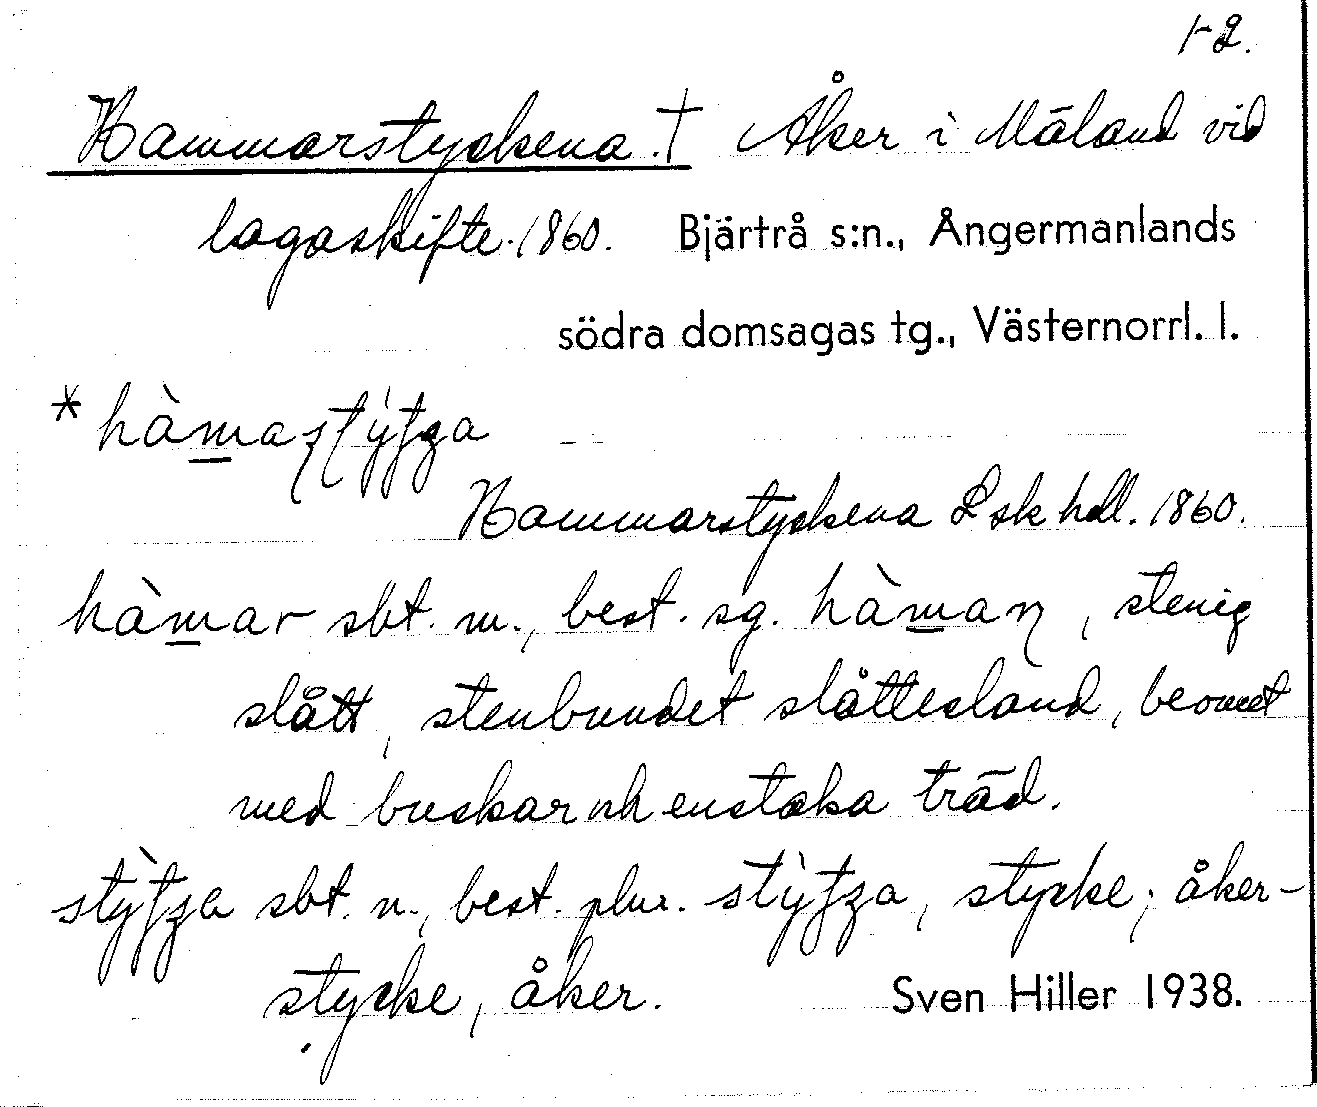 1-2.
Hammarstyckena. † Åker i Mäland vid
lagaskifte 1860. Bjärtrå s:n., Ångermanlands
södra domsagas tg., Västernorrl. l.
* hàmaʂtýtʒa
Hammarstyckena Lsk hdl. 1860.
hàmar sbt. m., best. sg. hàmaɳ, stenig
slått, stenbundet slåttesland, bevuxet
med buskar och enstaka träd.
stỳtʒa sbt. n., best. plur. stỳtʒa, stycke; åker-
stycke, åker. Sven Hiller 1938.